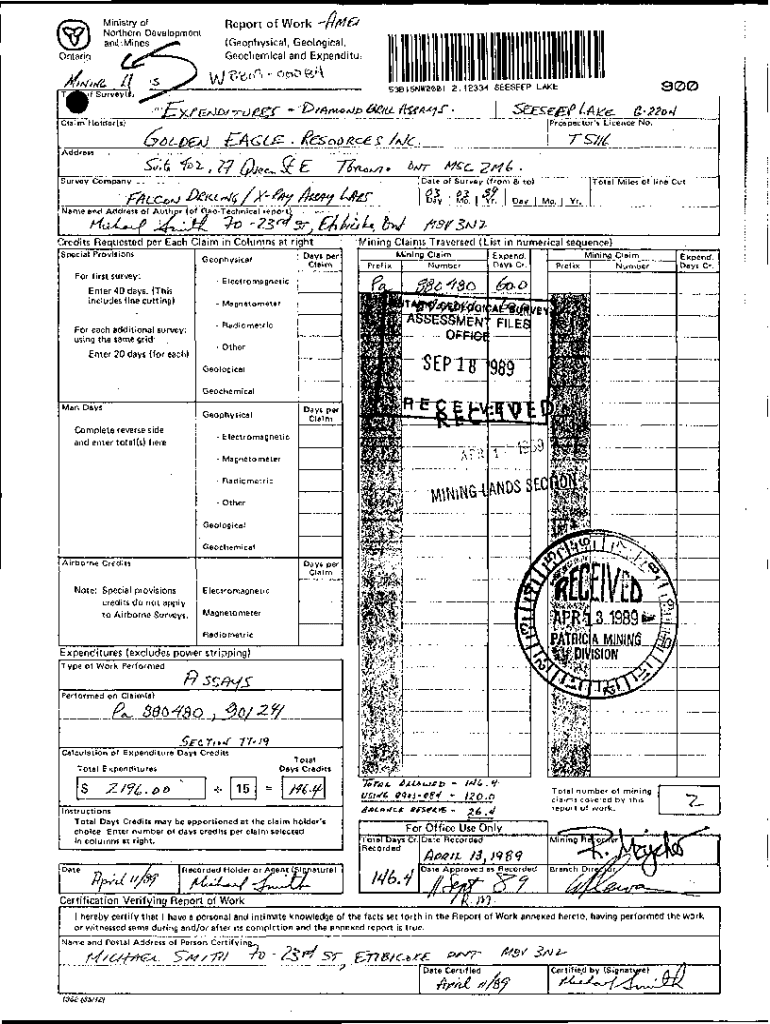 Ministry of
Northern Development
and Mines
Ontario
Report of Work
(Geophysical, Geological,
Geochemical and Expenditu
53B15NW2001 2.12334 SEESEEP LAKE
900
MINING
EXPENDITURES - DIAMOND DRILL ASSAYS.
SEESEEP LAKE G-2204
Claim Holder(s)
Prospector's Licence No.
GOLDEN EAGLE RESOURCES INC.
T5116
Address
Suite 402, 27 Queen St E Toronto. ONT M5C 2M6.
Survey Company
Date of Survey (from & to)
Total Miles of line Cut
FALCON DRILLING / X-RAY ASSAY LABS
03 03 89
Day Mo. Yr. Day Mo. Yr.
Name and Address of Author (of Geo-Technical report)
Michael Smith 70 - 23rd ST, Etobicoke, Ont M8V 3N2
Credits Requested per Each Claim in Columns at right
Mining Claims Traversed (List in numerical sequence)
Special Provisions
Geophysical
Days per Claim
Mining Claim
Prefix
Number
Expend. Days Cr.
Mining Claim
Prefix
Number
Expend. Days Cr.
For first survey:
Enter 40 days. (This
includes line cutting)
- Electromagnetic
- Magnetometer
For each additional survey:
using the same grid:
Enter 20 days (for each)
- Radiometric
- Other
Geological
Geochemical
Pa 980480 60.0
ONTARIO GEOLOGICAL SURVEY
ASSESSMENT FILES
OFFICE
SEP 18 1989
RECEIVED
RECEIVED
MINING LANDS SECTION
Man Days
Geophysical
Days per Claim
Complete reverse side
and enter total(s) here
- Electromagnetic
- Magnetometer
- Radiometric
- Other
Geological
Geochemical
Airborne Credits
Days per Claim
Note: Special provisions
credits do not apply
to Airborne Surveys.
Electromagnetic
Magnetometer
Radiometric
RECEIVED
APR 13 1989
PATRICIA MINING
DIVISION
Expenditures (excludes power stripping)
Type of Work Performed
ASSAYS
Performed on Claim(s)
Pa 980480, 901241
SECTION 77-19
Calculation of Expenditure Days Credits
Total Expenditures
Total
Days Credits
$ 2196.00 ÷ 15 = 146.4
TOTAL ALLOWED - 146.4
USING 8901-084 - 120.0
BALANCE RESERVE - 26.4
Total number of mining
claims covered by this
report of work.
2
Instructions
Total Days Credits may be apportioned at the claim holder's
choice. Enter number of days credits per claim selected
in columns at right.
For Office Use Only
Total Days Cr. Recorded
146.4
Date Recorded
APRIL 13, 1989
Mining Recorder
Date Approved as Recorded
11 Sept 89
Branch Director
Date
April 11/89
Recorded Holder or Agent (Signature)
Michael Smith
Certification Verifying Report of Work
I hereby certify that I have a personal and intimate knowledge of the facts set forth in the Report of Work annexed hereto, having performed the work
or witnessed same during and/or after its completion and the annexed report is true.
Name and Postal Address of Person Certifying
MICHAEL SMITH 70 - 23rd ST, ETOBICOKE ONT M8V 3N2
Date Certified
April 11/89
Certified by (Signature)
Michael Smith
1362 (85/12)